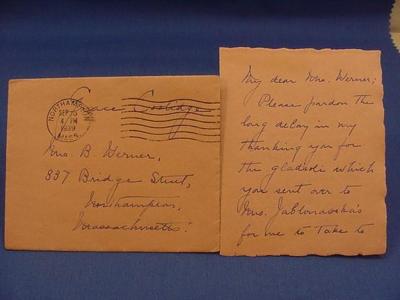 Grace Coolidge
NORTHAMPTON
SEP 15
4 PM
1939
MASS.
Mrs. B. Werner,
337 Bridge Street,
Northampton,
Massachusetts.
My dear Mrs. Werner;
Please pardon the
long delay in my
thanking you for
the gladioli which
you sent over to
Mrs. Jablonaska's
for me to take to